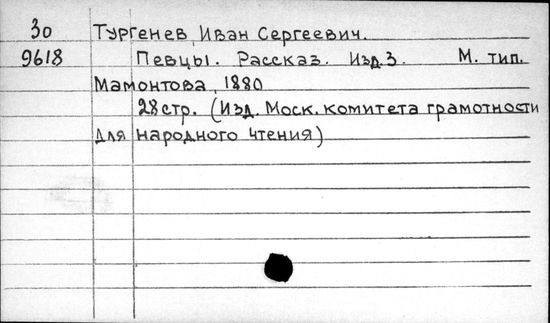 30 Тургенев, Иван Сергеевич.
9618 Певцы. Рассказ. Изд. 3. М. тип.
Мамонтова, 1880
28 стр. (Изд. Моск. комитета грамотности
для народного чтения)